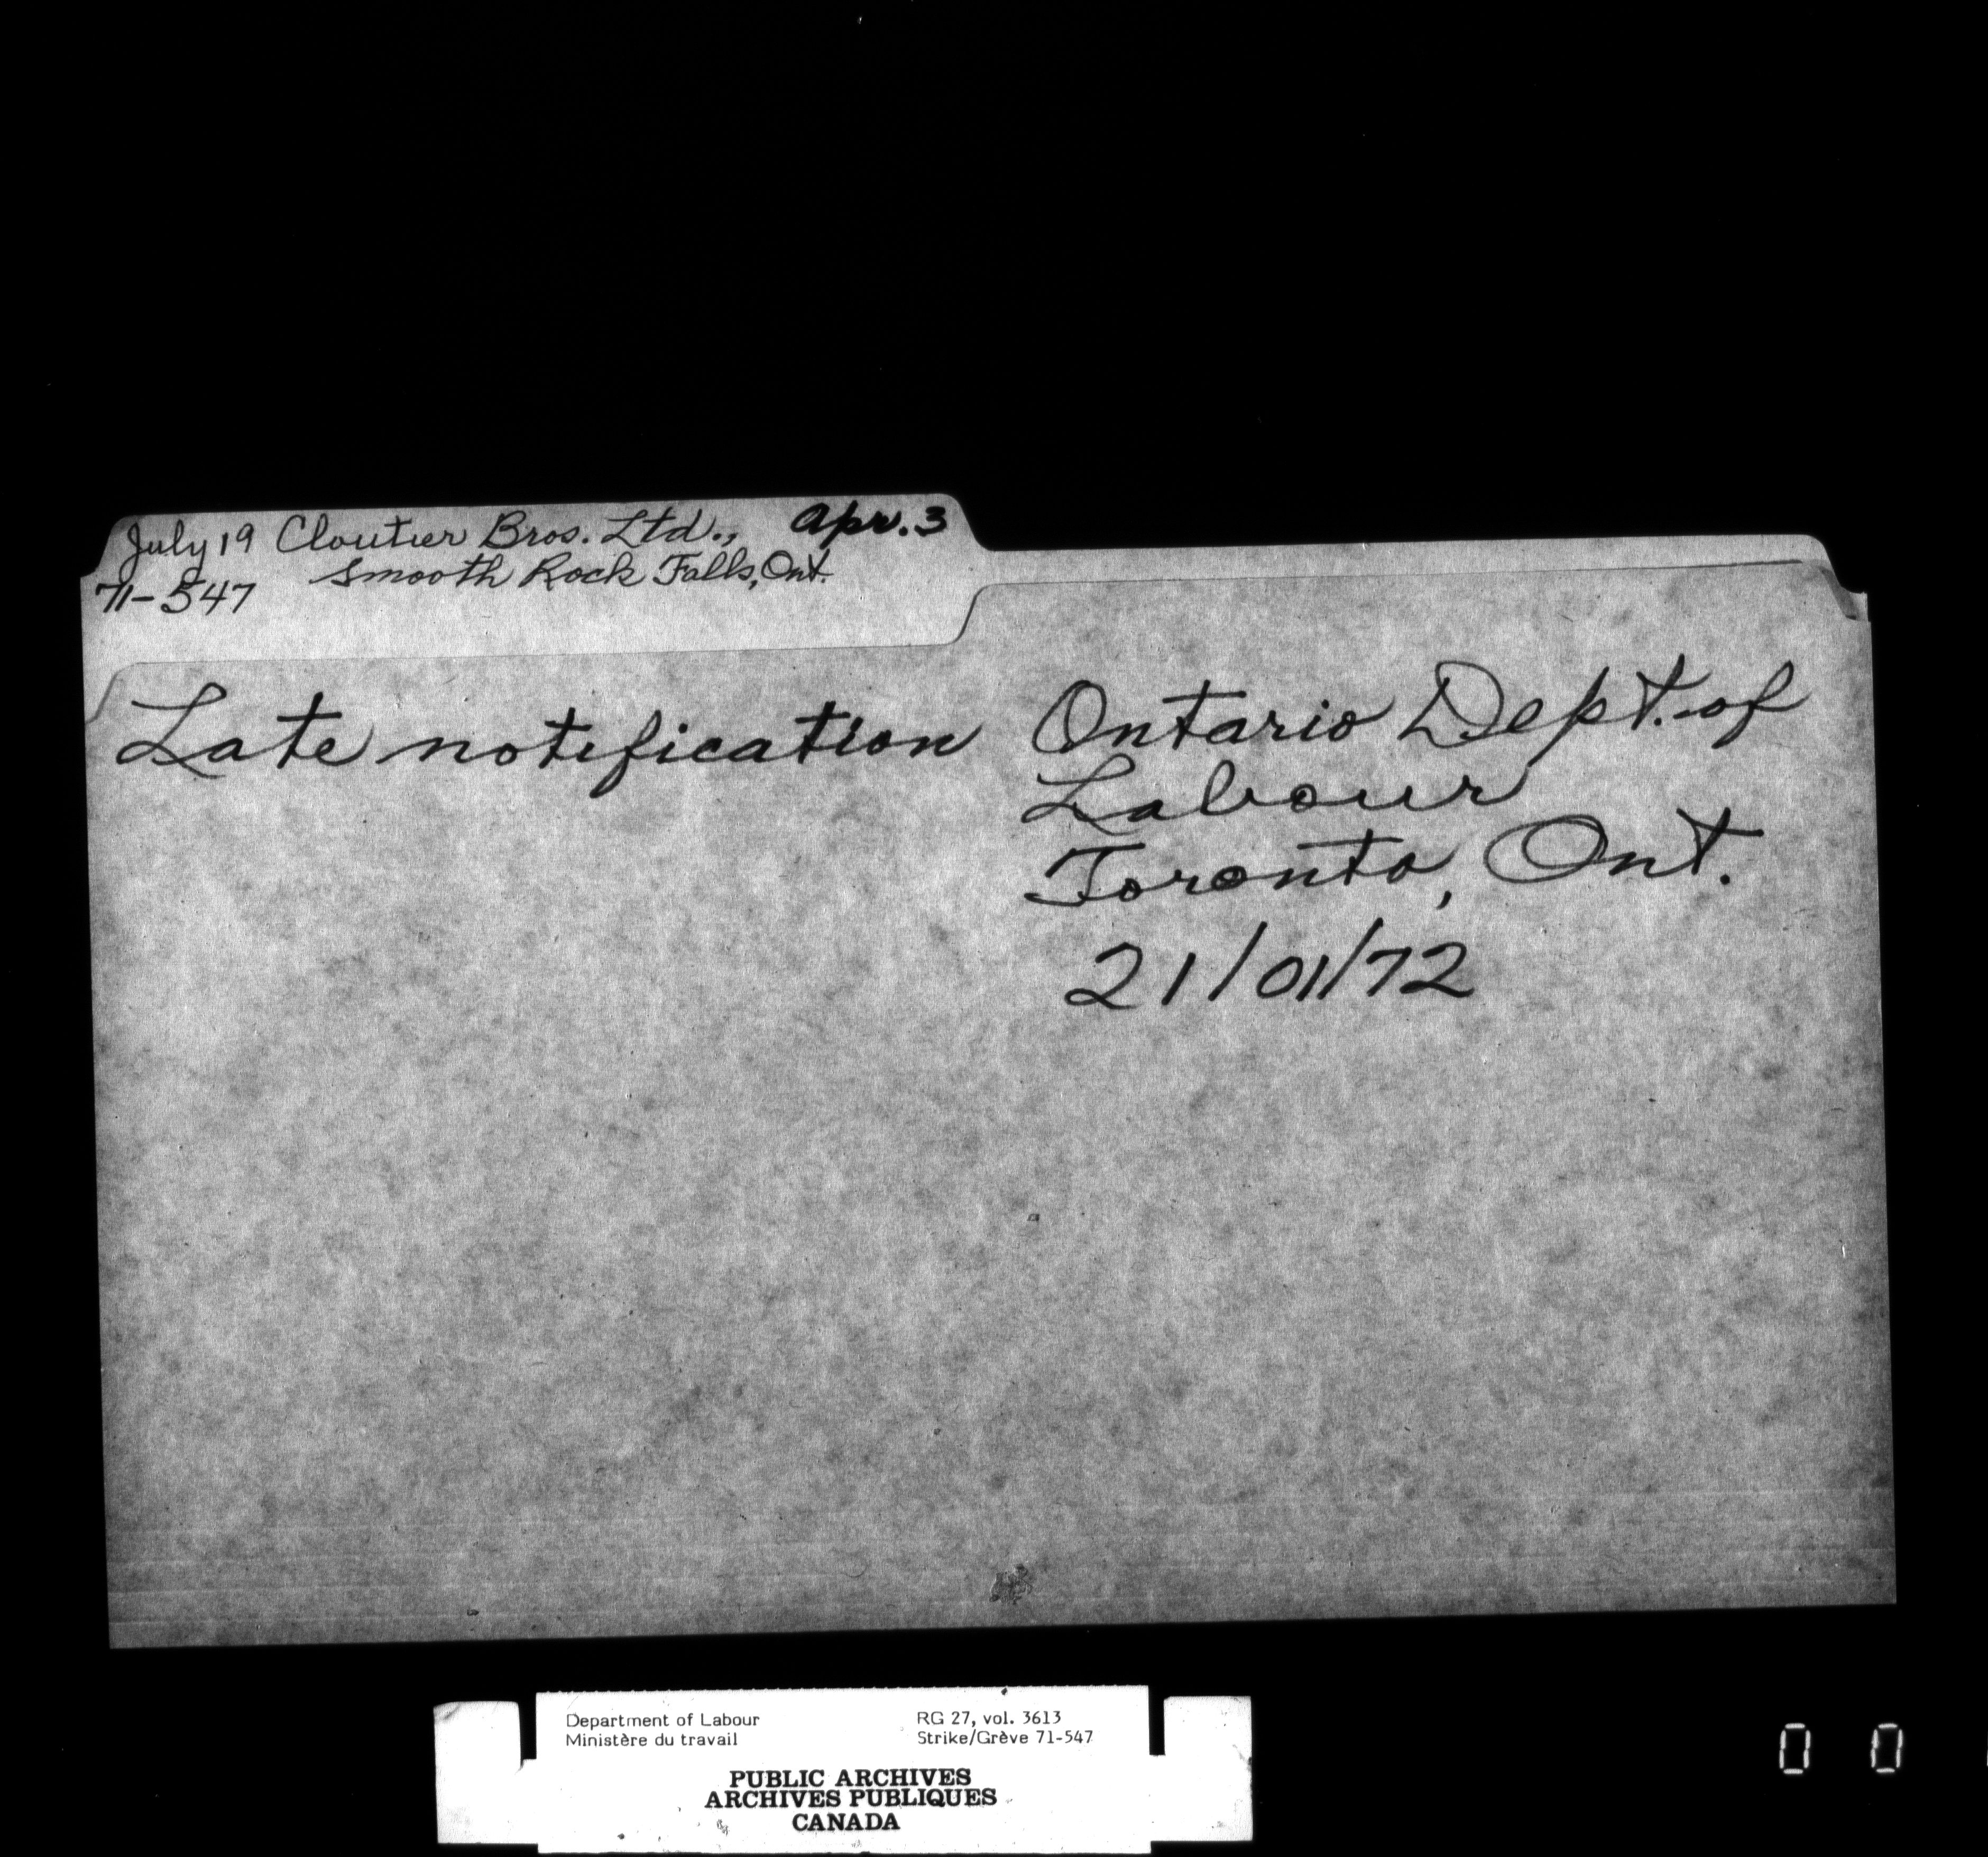 July 19 Cloutier Bros. Ltd., Apr. 3
71-547 Smooth Rock Falls, Ont.
Late notification
Ontario Dept. of
Labour
Toronto, Ont.
21/01/72
Department of Labour
Ministère du travail
RG 27, vol. 3613
Strike/Grève 71-547
PUBLIC ARCHIVES
ARCHIVES PUBLIQUES
CANADA
0 0